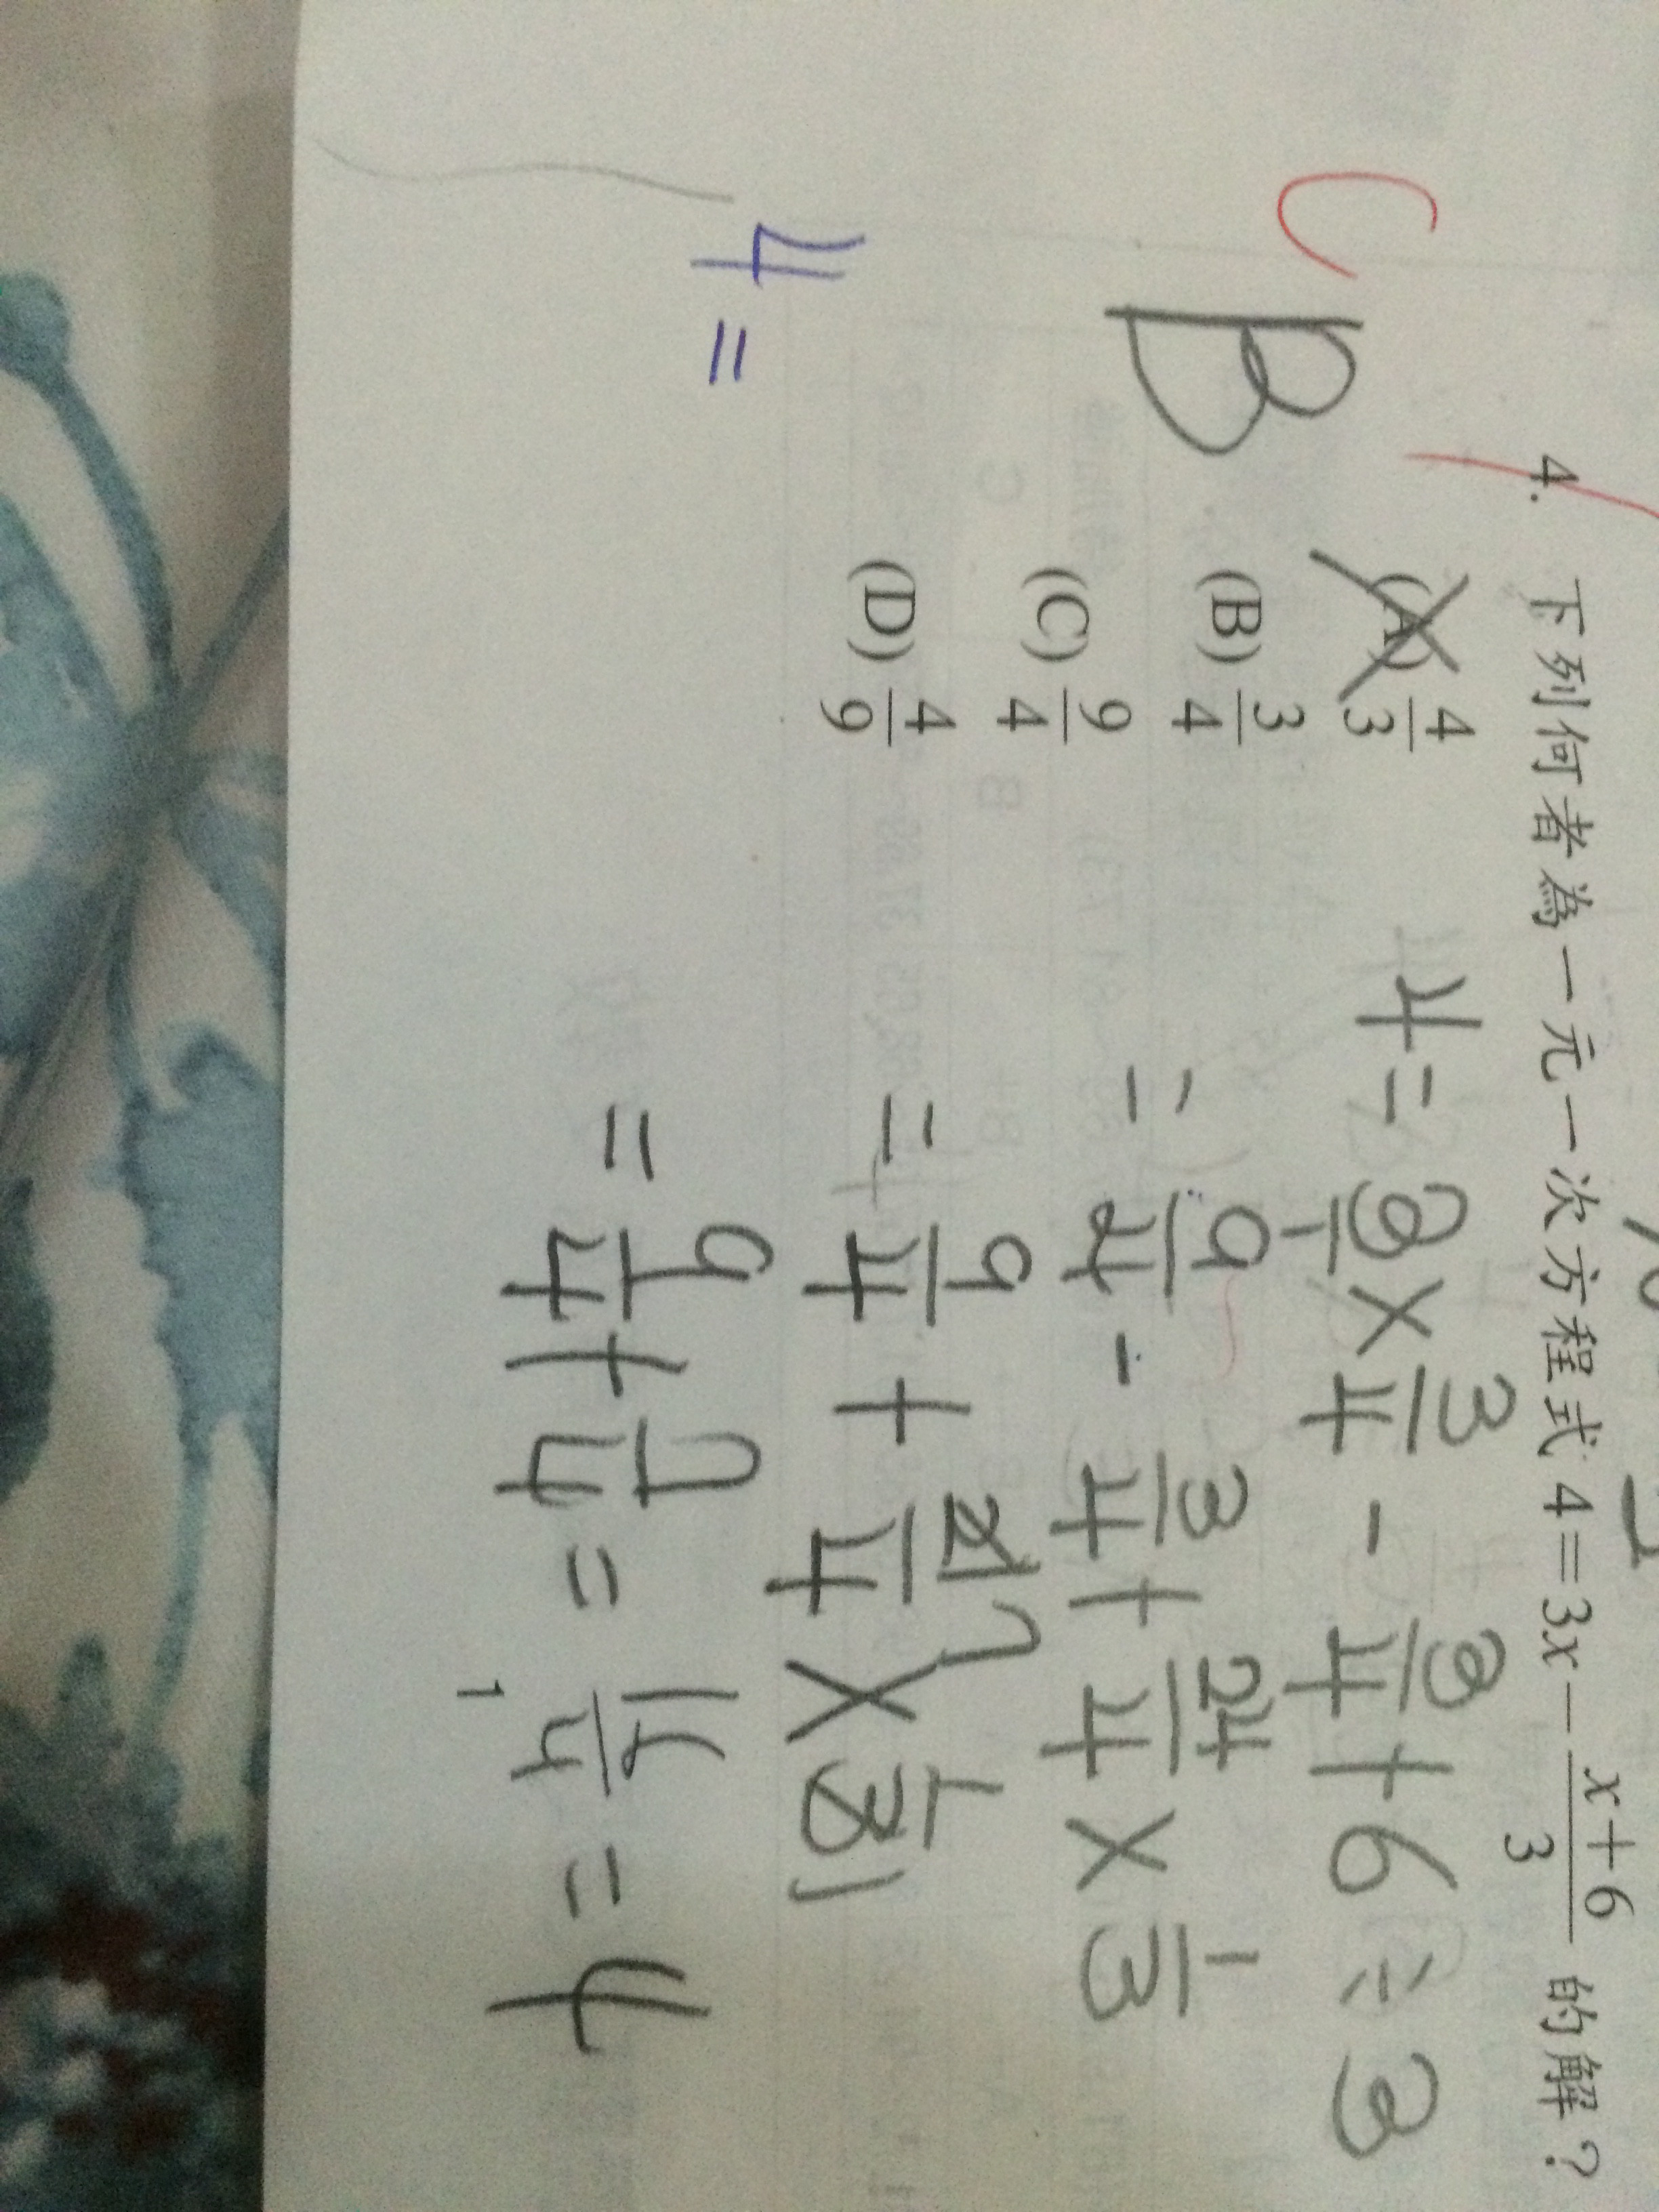 4. 下列何者為一元一次方程式 4=3x-\frac{x+6}{3} 的解？
C
B
(A) \frac{4}{3}
(B) \frac{3}{4}
(C) \frac{9}{4}
(D) \frac{4}{9}
4 = \frac{3}{1} × \frac{3}{4} - \frac{3}{4} + 6 ÷ 3
= \frac{9}{4} - \frac{3}{4} + \frac{24}{4} × \frac{1}{3}
= \frac{9}{4} + \frac{21}{4} 7 × \frac{1}{3} 1
= \frac{9}{4} + \frac{7}{4} = \frac{16}{4} = 4
1
4 =